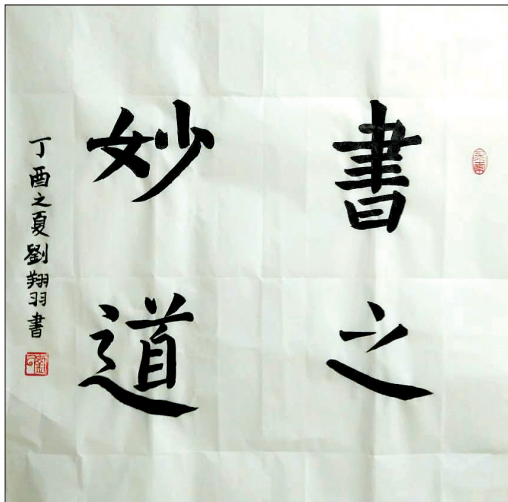 書之
妙道
丁酉之夏劉翔羽書